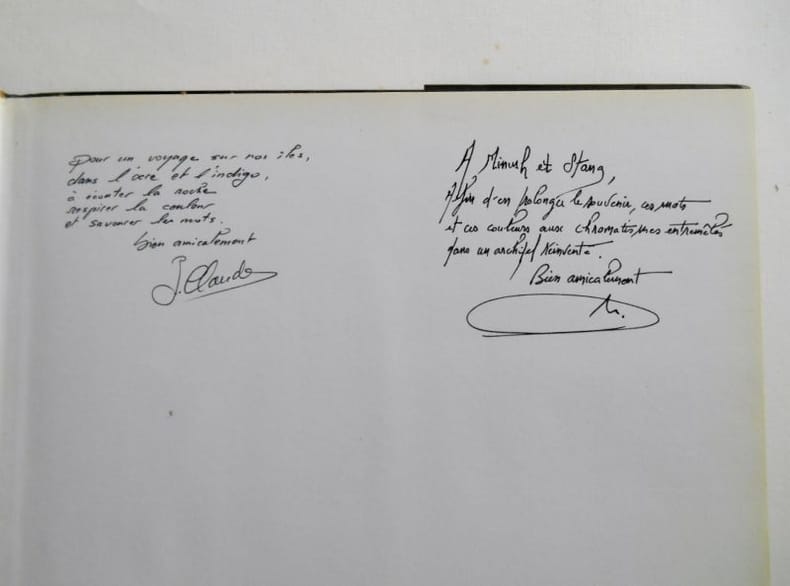 Pour un voyage sur nos îles,
dans l'ocre et l'indigo,
à écouter la roche
respirer la couleur
et savourer les mots.
bien amicalement
J. Claude
A Minush et Stang,
Afin d'en prolonger le souvenir, ces mots
et ces couleurs aux chromatismes entremêlés
dans un archipel réinventé.
Bien amicalement